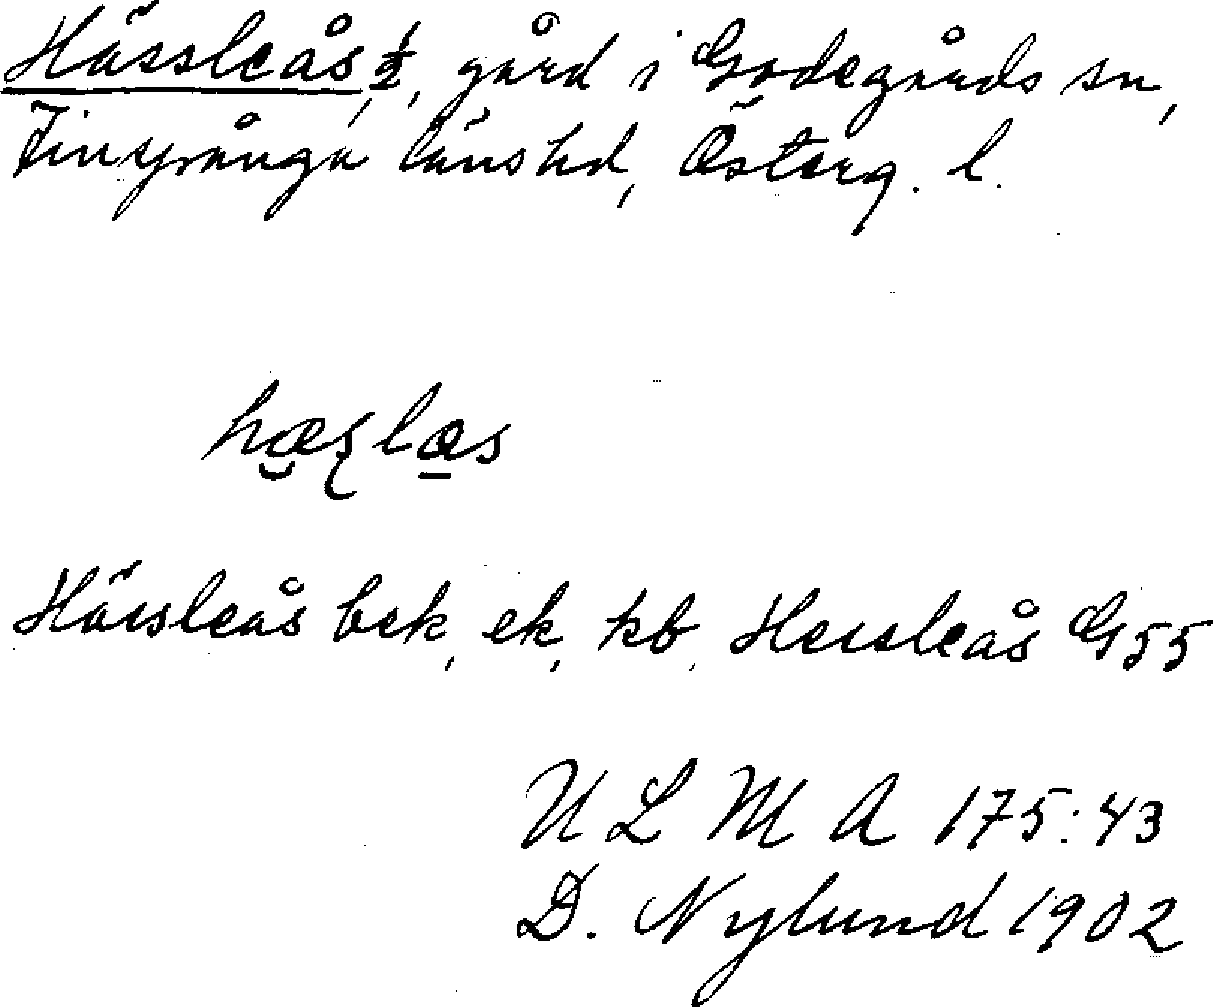 Hässleås, ½, gård i Godegårds sn,
Finspånga länshd, Österg. l.
hæslæs
Hässleås bek, ek, kb, Hessleås G55
ULMA 175:43
D. Nylund 1902